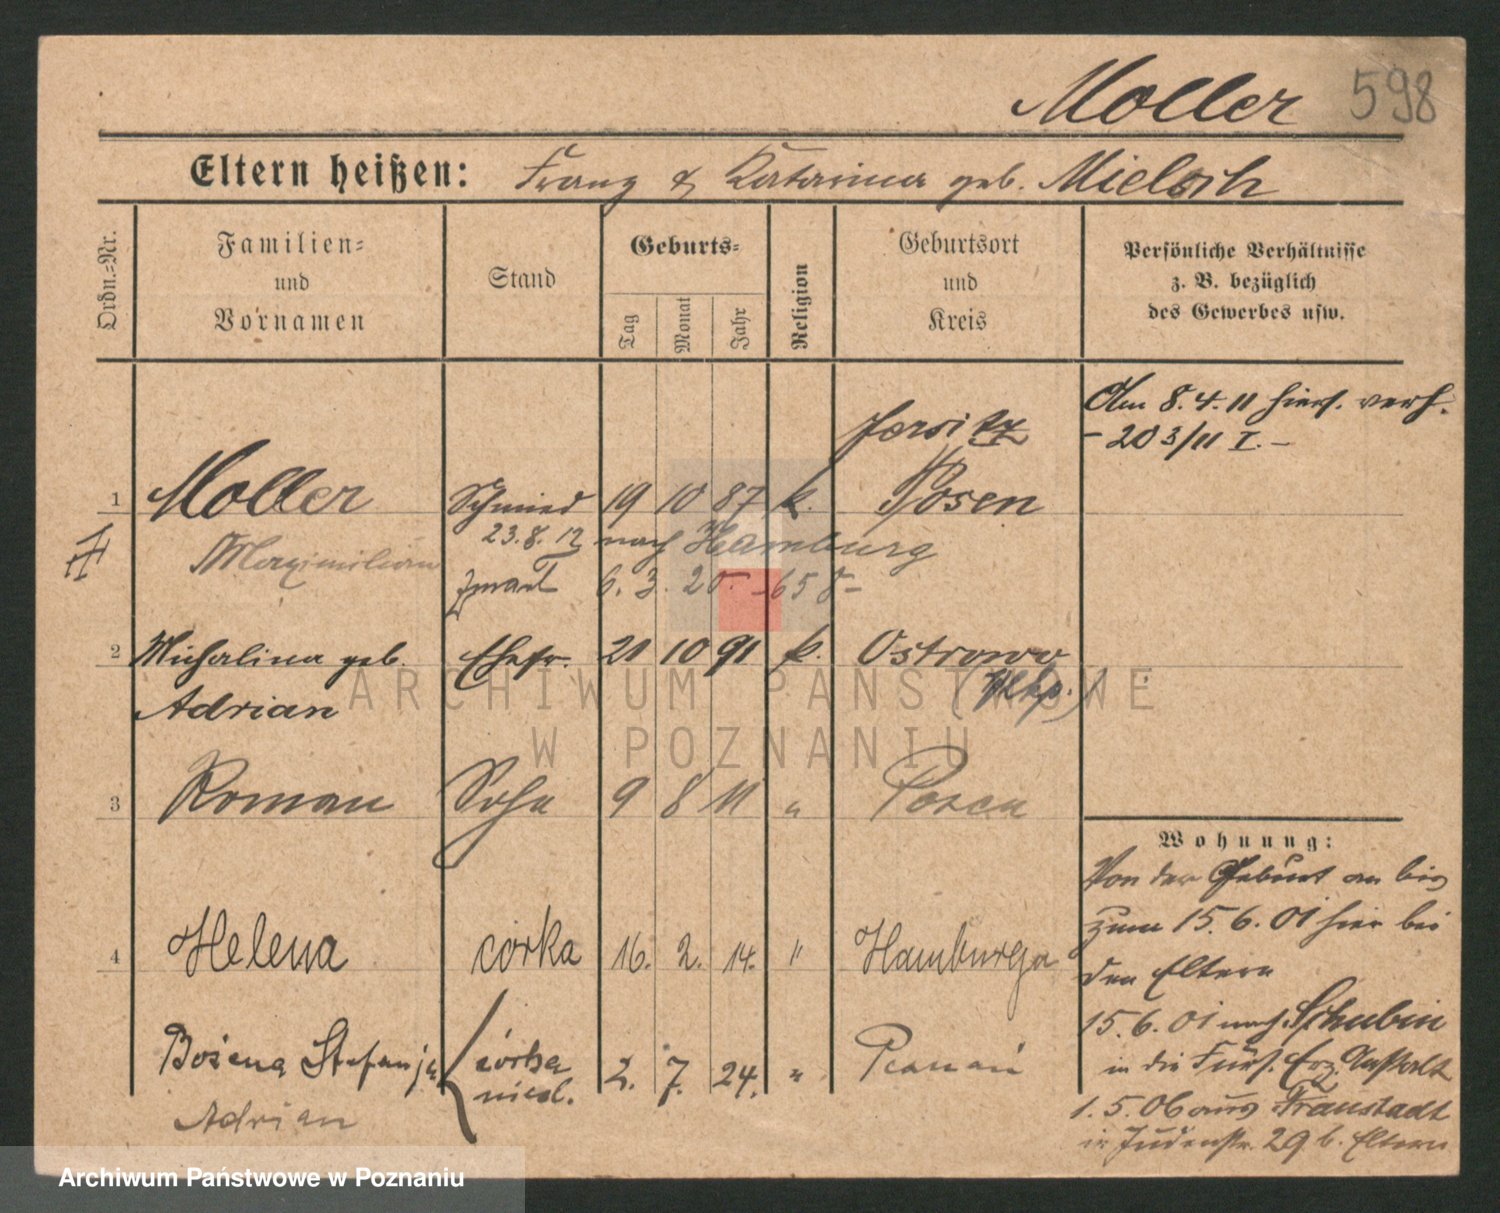 Moller 598
Eltern heißen: Franz & Katarina geb. Mieloch
Ordn.=Nr.
Familien=
und
Vornamen
Stand
Geburts=
Tag
Monat
Jahr
Religion
Geburtsort
und
Kreis
Persönliche Verhältnisse
z. B. bezüglich
des Gewerbes usw.
Am 8.4.11 hier verh.
– 203/11 I. –
Jersitz
1 Moller Schmied 19 10 87 k. Posen
23.8.12 nach Hamburg
Maximilian
zmarł 6.3.25. – 658 –
2 Michalina geb. Ehefr. 21 10 91 k. Ostrowo
Adrian (Wlkp.)
3 Roman Sohn 9 8 11 " Posen
4 Helena córka 16. 2. 14. " Hamburga
Bożena Stefanja córka 2. 7. 24. " Poznań
nieśl.
Adrian
Wohnung:
Von der Geburt an bis
zum 15.6.01 hier bei
den Eltern
15.6.01 nach Schubin
in die Fürs. Erz. Anstalt
1.5.06 aus Fraustadt
in Judenstr. 29 b. Eltern
ARCHIWUM PAŃSTWOWE
W POZNANIU
Archiwum Państwowe w Poznaniu